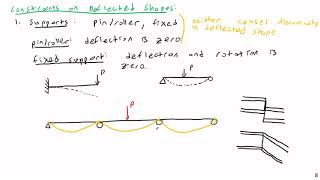 Constraints on Deflected Shapes:
1. Supports: pin/roller, fixed
neither cause discontinuity
in deflected shape
pin/roller: deflection is zero
fixed support: deflection and rotation is
zero.
P
P
P
8